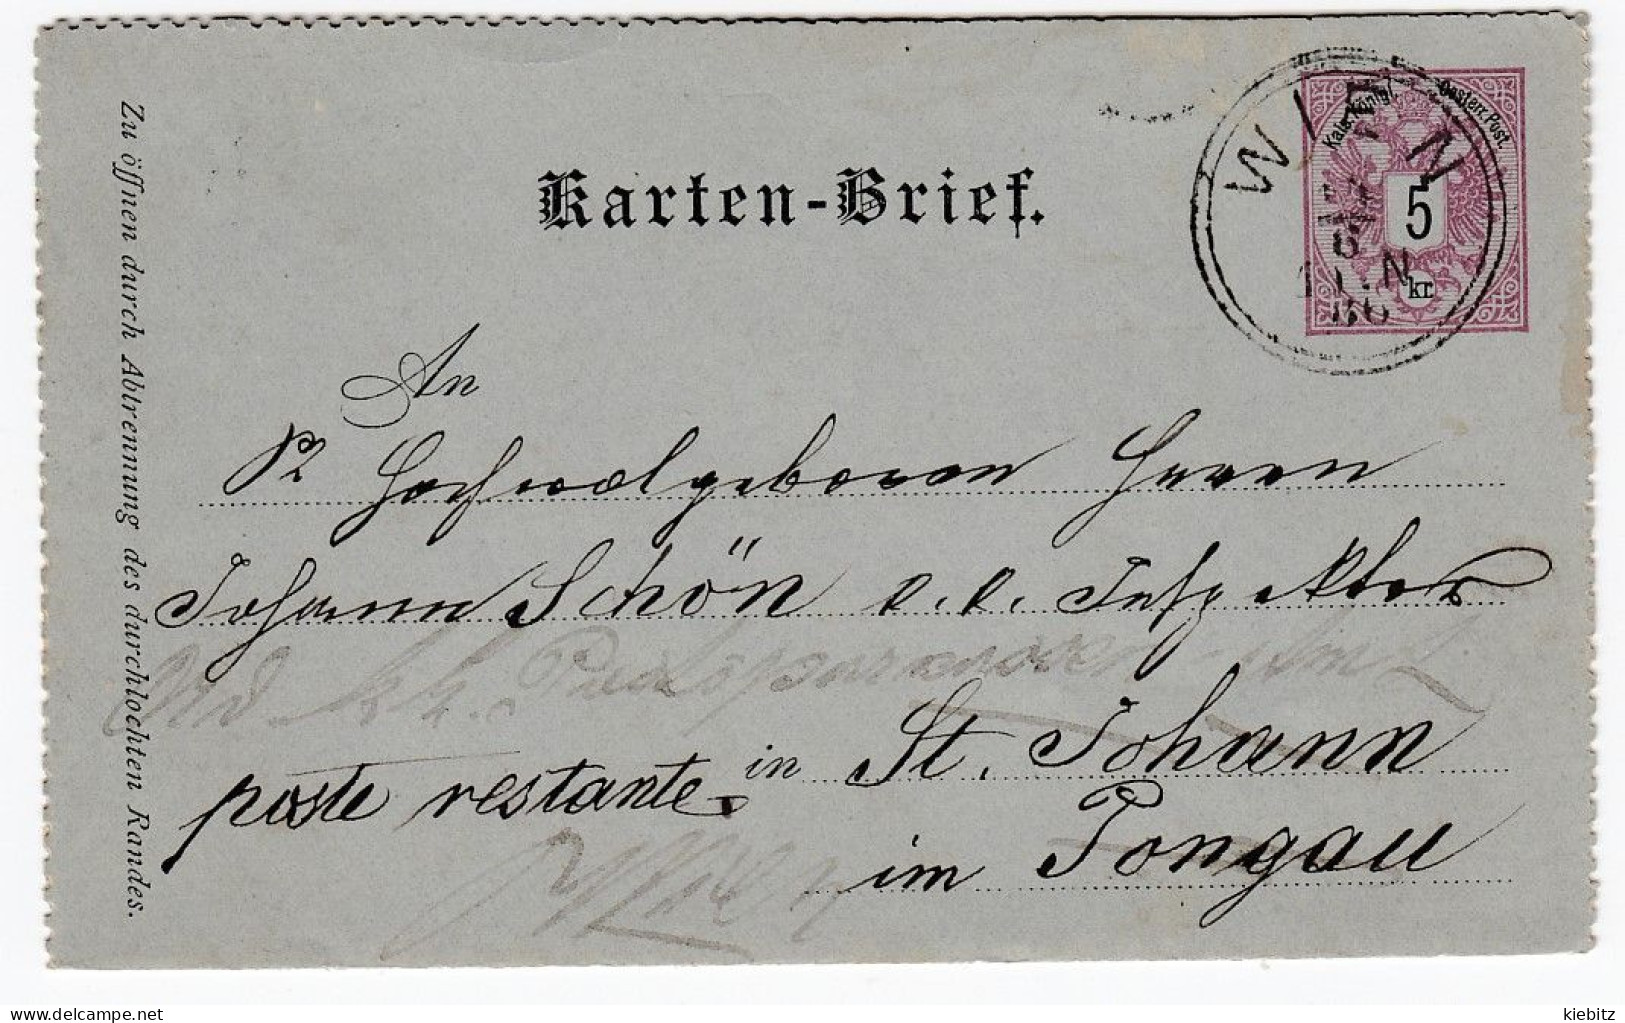 Karten-Brief.
Kais. Königl. Oesterr. Post.
5
kr.
WIEN
Zu öffnen durch Abtrennung des durchlochten Randes.
An
Hochwolgeboren Herrn
Johann Schön Inspektor
poste restante in St. Johann
im Pongau
delcampe.net
kiebitz